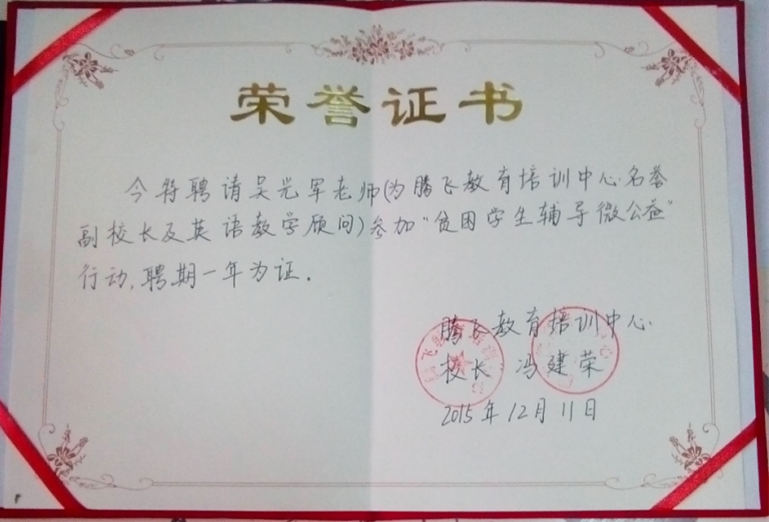 荣誉证书
今特聘请吴光军老师(为腾飞教育培训中心名誉
副校长及英语教学顾问)参加"贫困学生辅导微公益"
行动,聘期一年为证.
腾飞教育培训中心
校长 冯建荣
2015年12月11日